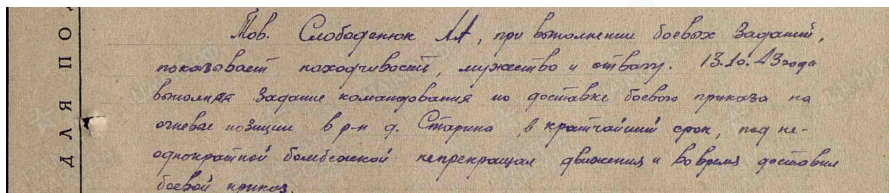 Д Л Я П О
Тов. Слободенюк А.А, при выполнении боевых заданий,
показывает находчивость, мужество и отвагу. 13.10.43 года
выполняя задание командования по доставке боевого приказа на
огневые позиции в р-н д. Старина в кратчайший срок, под не-
однократной бомбежкой непрекращая движения и во время доставил
боевой приказ.